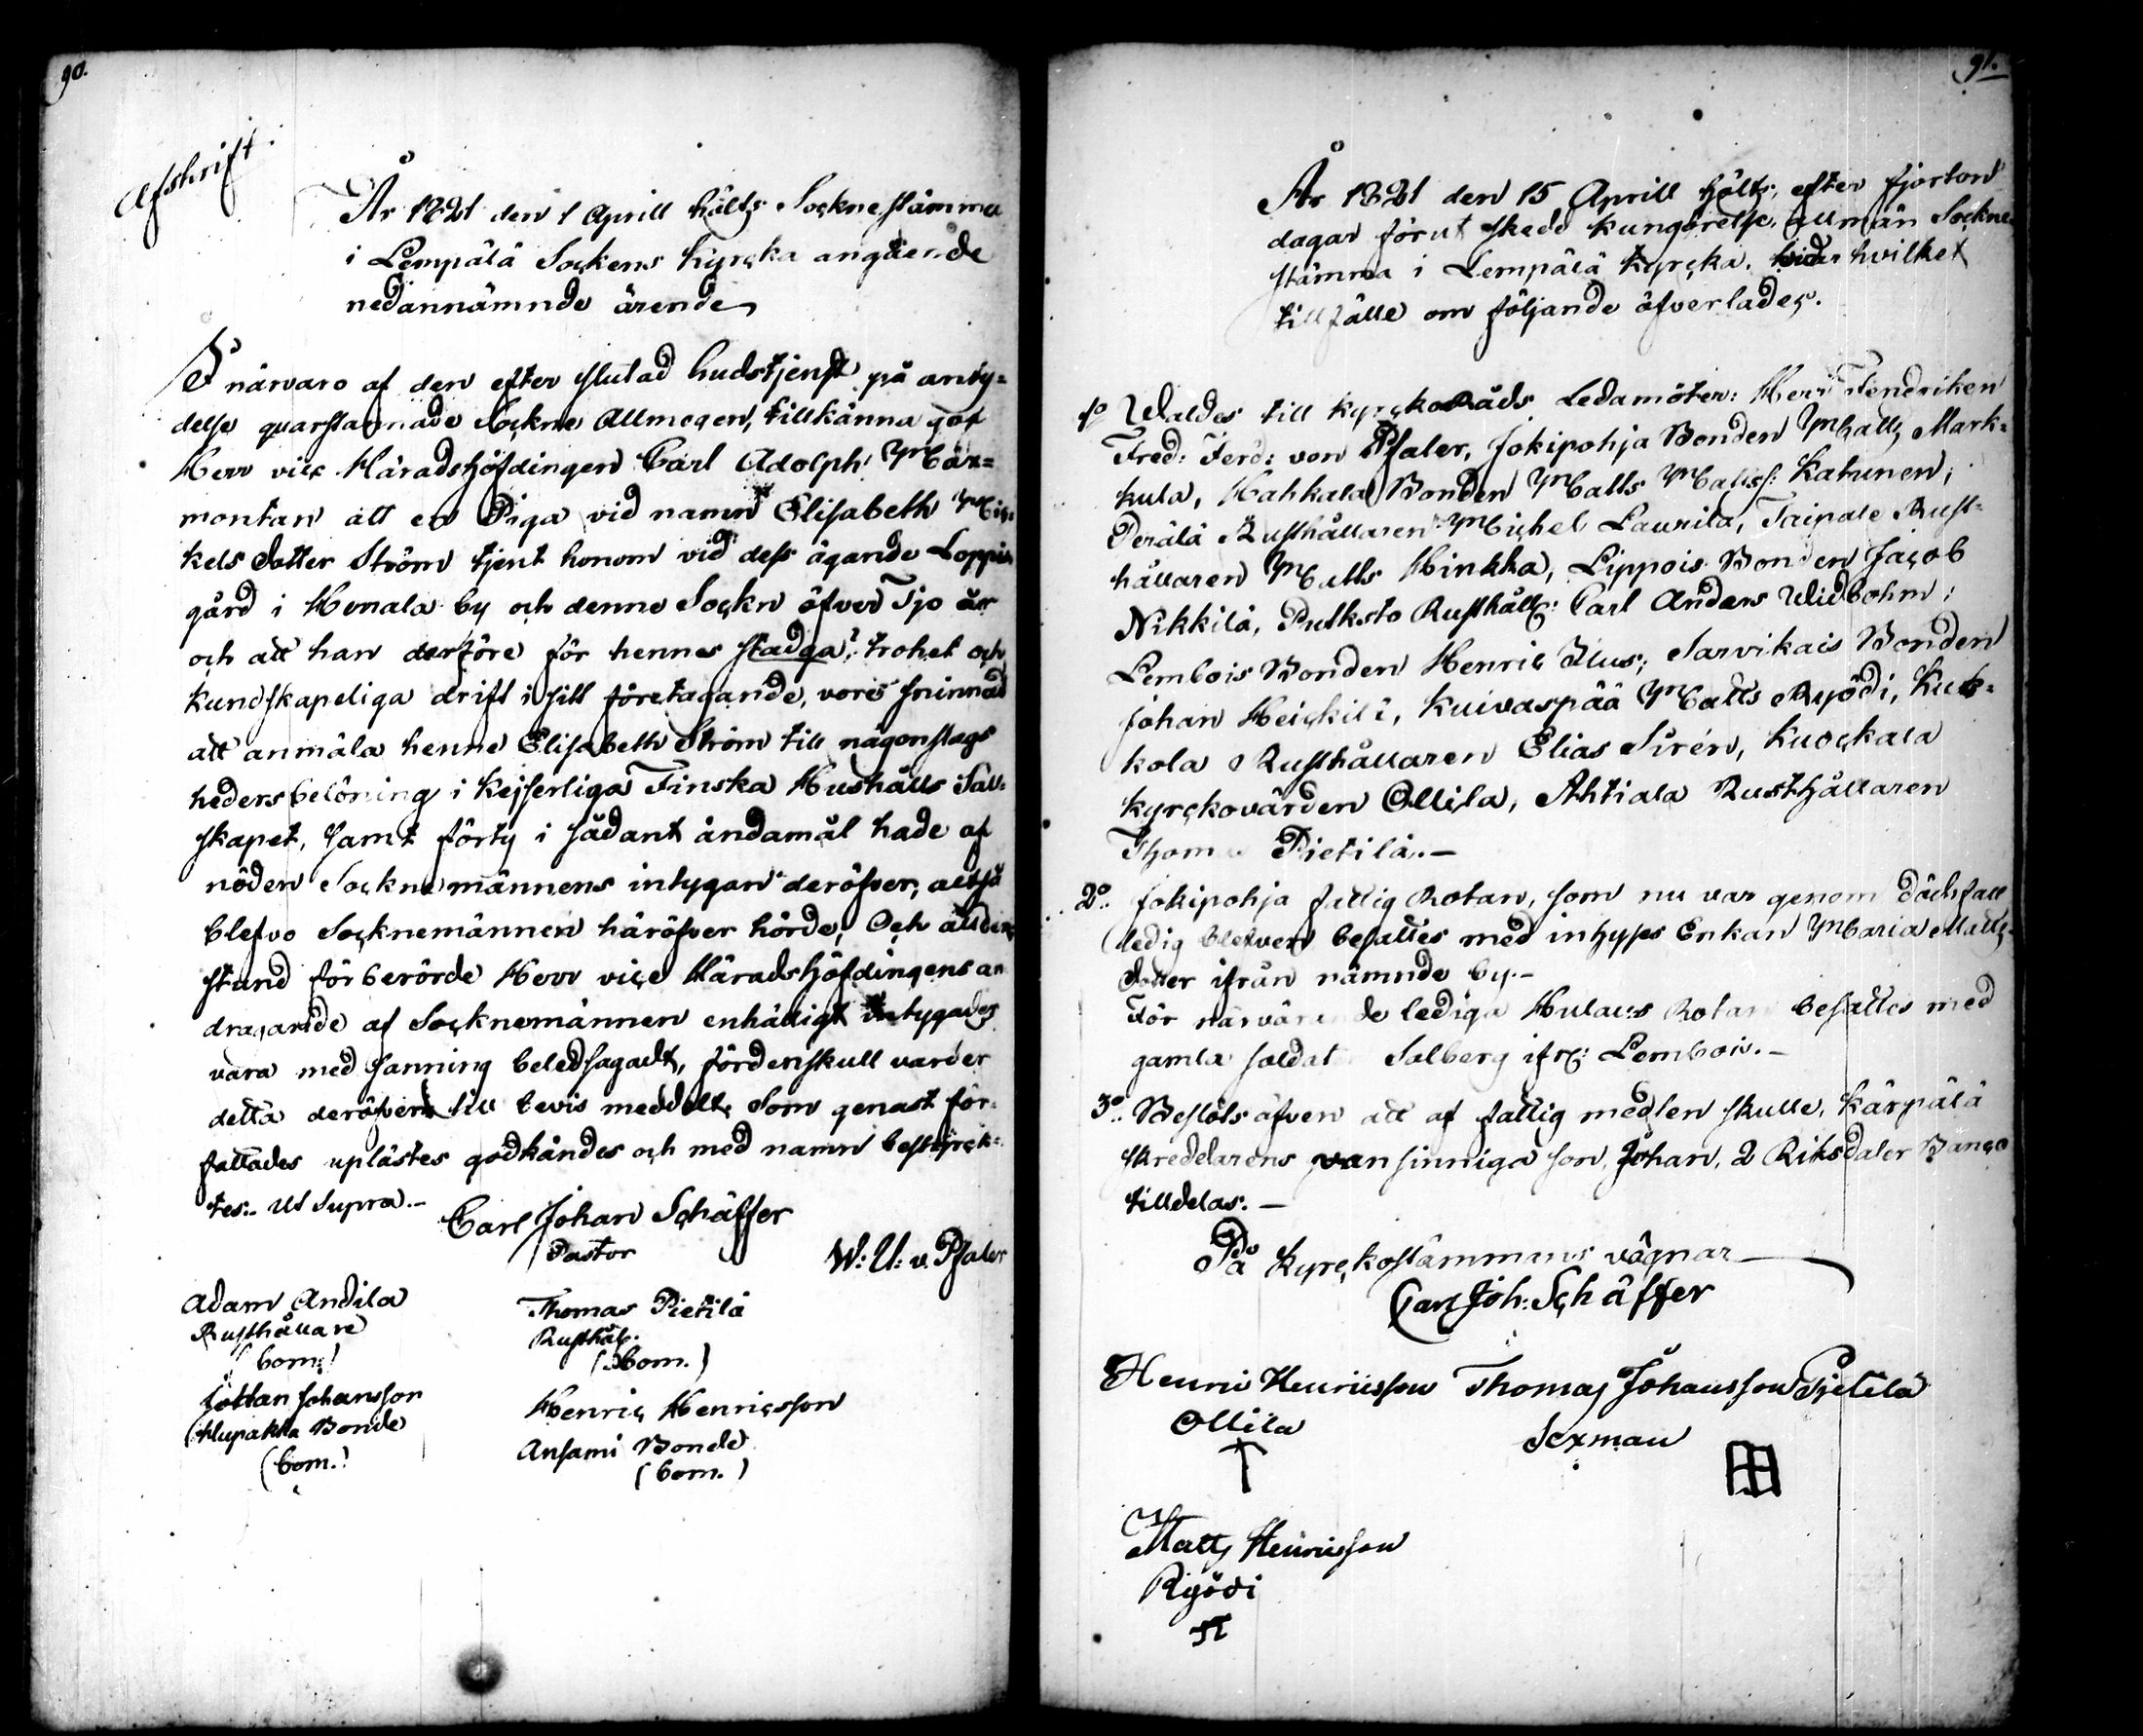 90.
Afskrift.
År 1821 den 1 Aprill hölts Sockne stämma
i Lempälä Sockens Kyrcka angående
nedannämnde ärende
I närvaro af den efter slutad Gudstjenst på anty-
delse quarstannade Sockne Allmogen, tillkänna gaf
Herr vice Häradshöfdingen Carl Adolph
montan att en Piga vid namn Elisabeth Mic-
kels dotter Ström tjent honom vid dess ägande Loppis
gård i Henala by och denne Sockn öfver Tjo år
och att han derföre för hennes stadga, trohet och
kundskapeliga drift i sitt företagande, vore sinnad
att anmäla henne Elisabeth Ström till någonslags
hedersbelöning i Kejserliga Finska Hushålls Säll-
skapet, samt förty i sådant ändamål hade af
nöden Socknemännens intygan deröfver; altså
blefvo Socknemännen häröfver hörde; Och
förberörde Herr vice Häradshöfdingens an
dragande af Socknemännen enhäligt intygades
vara med sanning beledsagadt, fördenskull varder
detta deröfver till bevis meddelt, Som genast för-
fattades uplästes godkändes och med namn bestyrck-
tes.. Ut Supra.-
Carl Johan Schäffer
Pastor
W: U: v. Pfaler
Adam Andila
Rusthållare
(bom.)
Thomas Pietilä
Rusthål.
(bom.)
Johan Johansson
Bonde
(bom.)
Henric Henricsson
Ansami Bonde
(bom.)
91.
År 1821 den 15 Aprill hölts, efter fjorton
dagar förut skedd kungörelse, allmän Sockne
stämma i Lempälä Kyrcka. vid hvilket
tillfälle om följande öfverlades.
1o Waldes till Kyrckoråds Ledamöter: Herr Fendriken
Fred: Ferd: von Pfaler, Jokipohja Bonden Matts Mark-
kula, Hahkala Bonden Matts Matss: Katunen,
Perälä Rusthållaren Michel Laurila, Taipale Rust-
hållaren Matts Hinkka, Lippois Bonden Jacob
Nikkilä, Pulksto Rusthåll: Carl Anders Widbohm;
Lembois Bonden Henric Ilus; Sarvikais Bonden
Johan Heickilä, Kuivaspää Matts Ryödi, Kuk-
kola Rusthållaren Elias Sirén, Kuockala
Kyrckovärden Ollila, Ahtiala Rusthållaren
Thomas Pietilä.-
2o. Jokipohja fattig Rotan, som nu var genom dödsfall
ledig blefven besattes med inhyses Enkan Maria Matts-
dotter ifrån nämnde by.-
För närvarande lediga Hulaus Rotan besattes med
gamla soldat Salberg ifr: Lembois.-
3o. Beslöts äfven att af fattig medlen skulle, Kärpälä
skreddarens vansinniga son, Johan, 2 Riksdaler Banco
tilldelas.-
På Kyrckostämmans vägnar
Carl Joh: Schäffer
Henric Henricsson Thomas Johansson Pietilä
Ollila
Sexman
Matts Henricsson
Ryödi